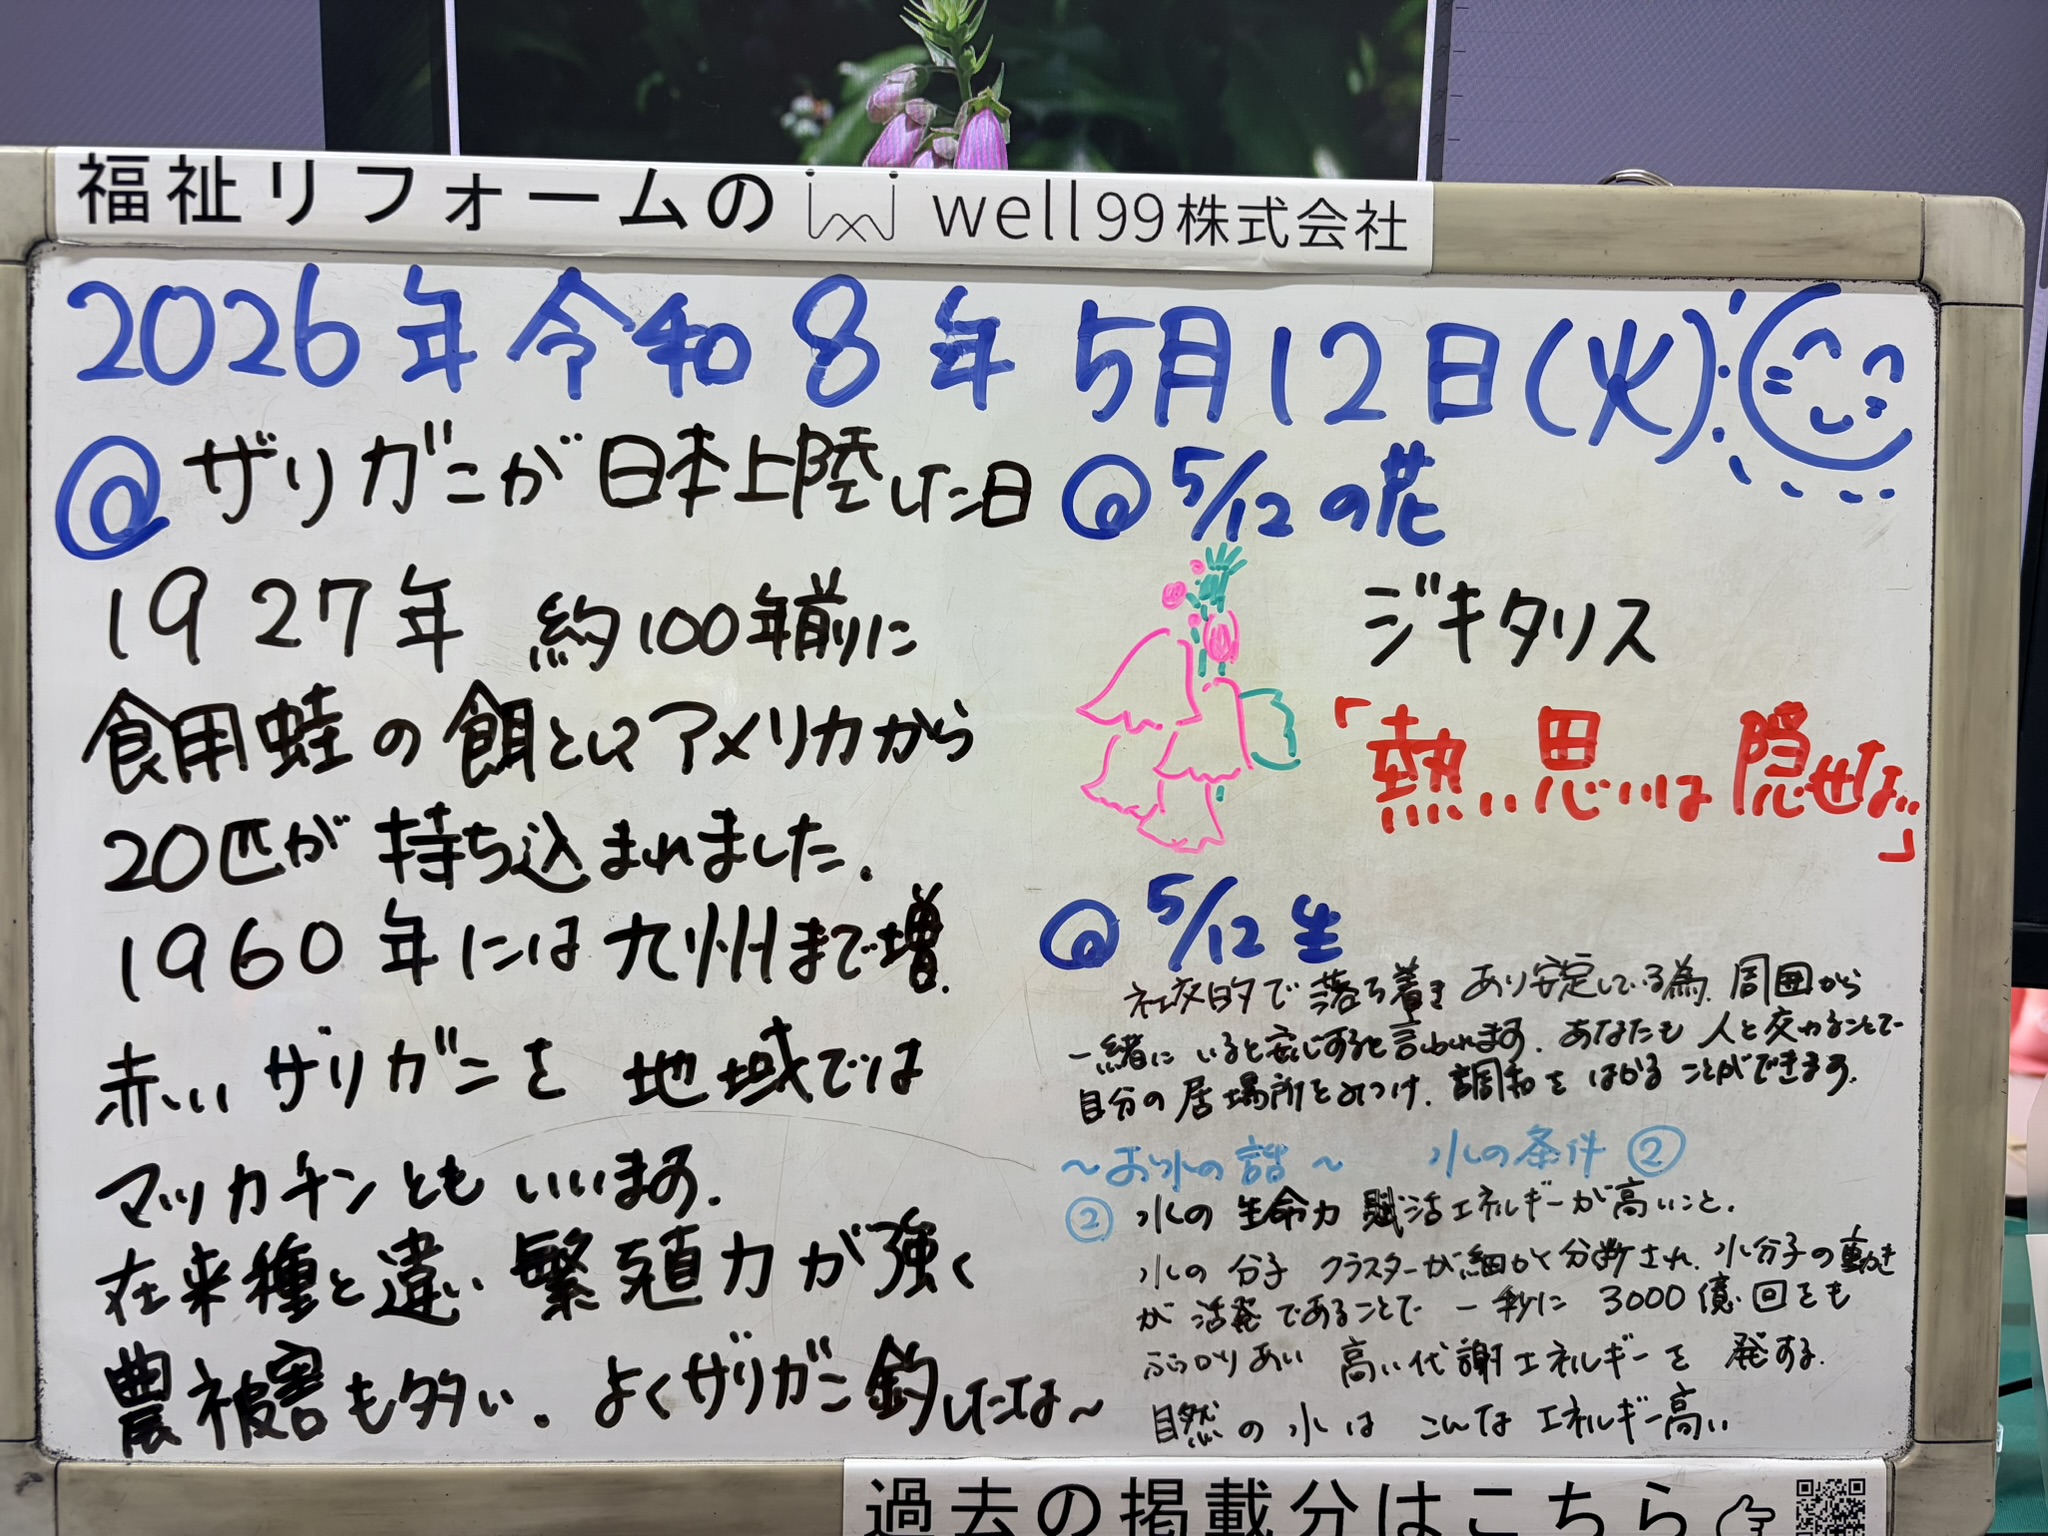 福祉リフォームの well99株式会社
2026年令和8年 5月12日(火)
@ ザリガニが日本上陸した日
1927年 約100年前に
食用蛙の餌としてアメリカから
20匹が持ち込まれました.
1960年には九州まで増.
赤いザリガニを地域では
マッカチンともいいます.
在来種と違い繁殖力が強く
農被害も多い. よくザリガニ釣したな〜
@ 5/12の花
ジキタリス
「熱い思いは隠せない」
@ 5/12生
社交的で落ち着きあり安定している為. 周囲から
一緒にいると安心すると言われます. あなたも人と交わることで
自分の居場所をみつけ. 調和をはかることができます.
〜お水の話〜 水の条件②
② 水の生命力 賦活エネルギーが高いこと.
水の分子クラスターが細かく分断され. 水分子の動き
が活発であることで一秒に3000億回をも
ぶつかりあい高い代謝エネルギーを発する.
自然の水はこんなエネルギー高い
過去の掲載分はこちら